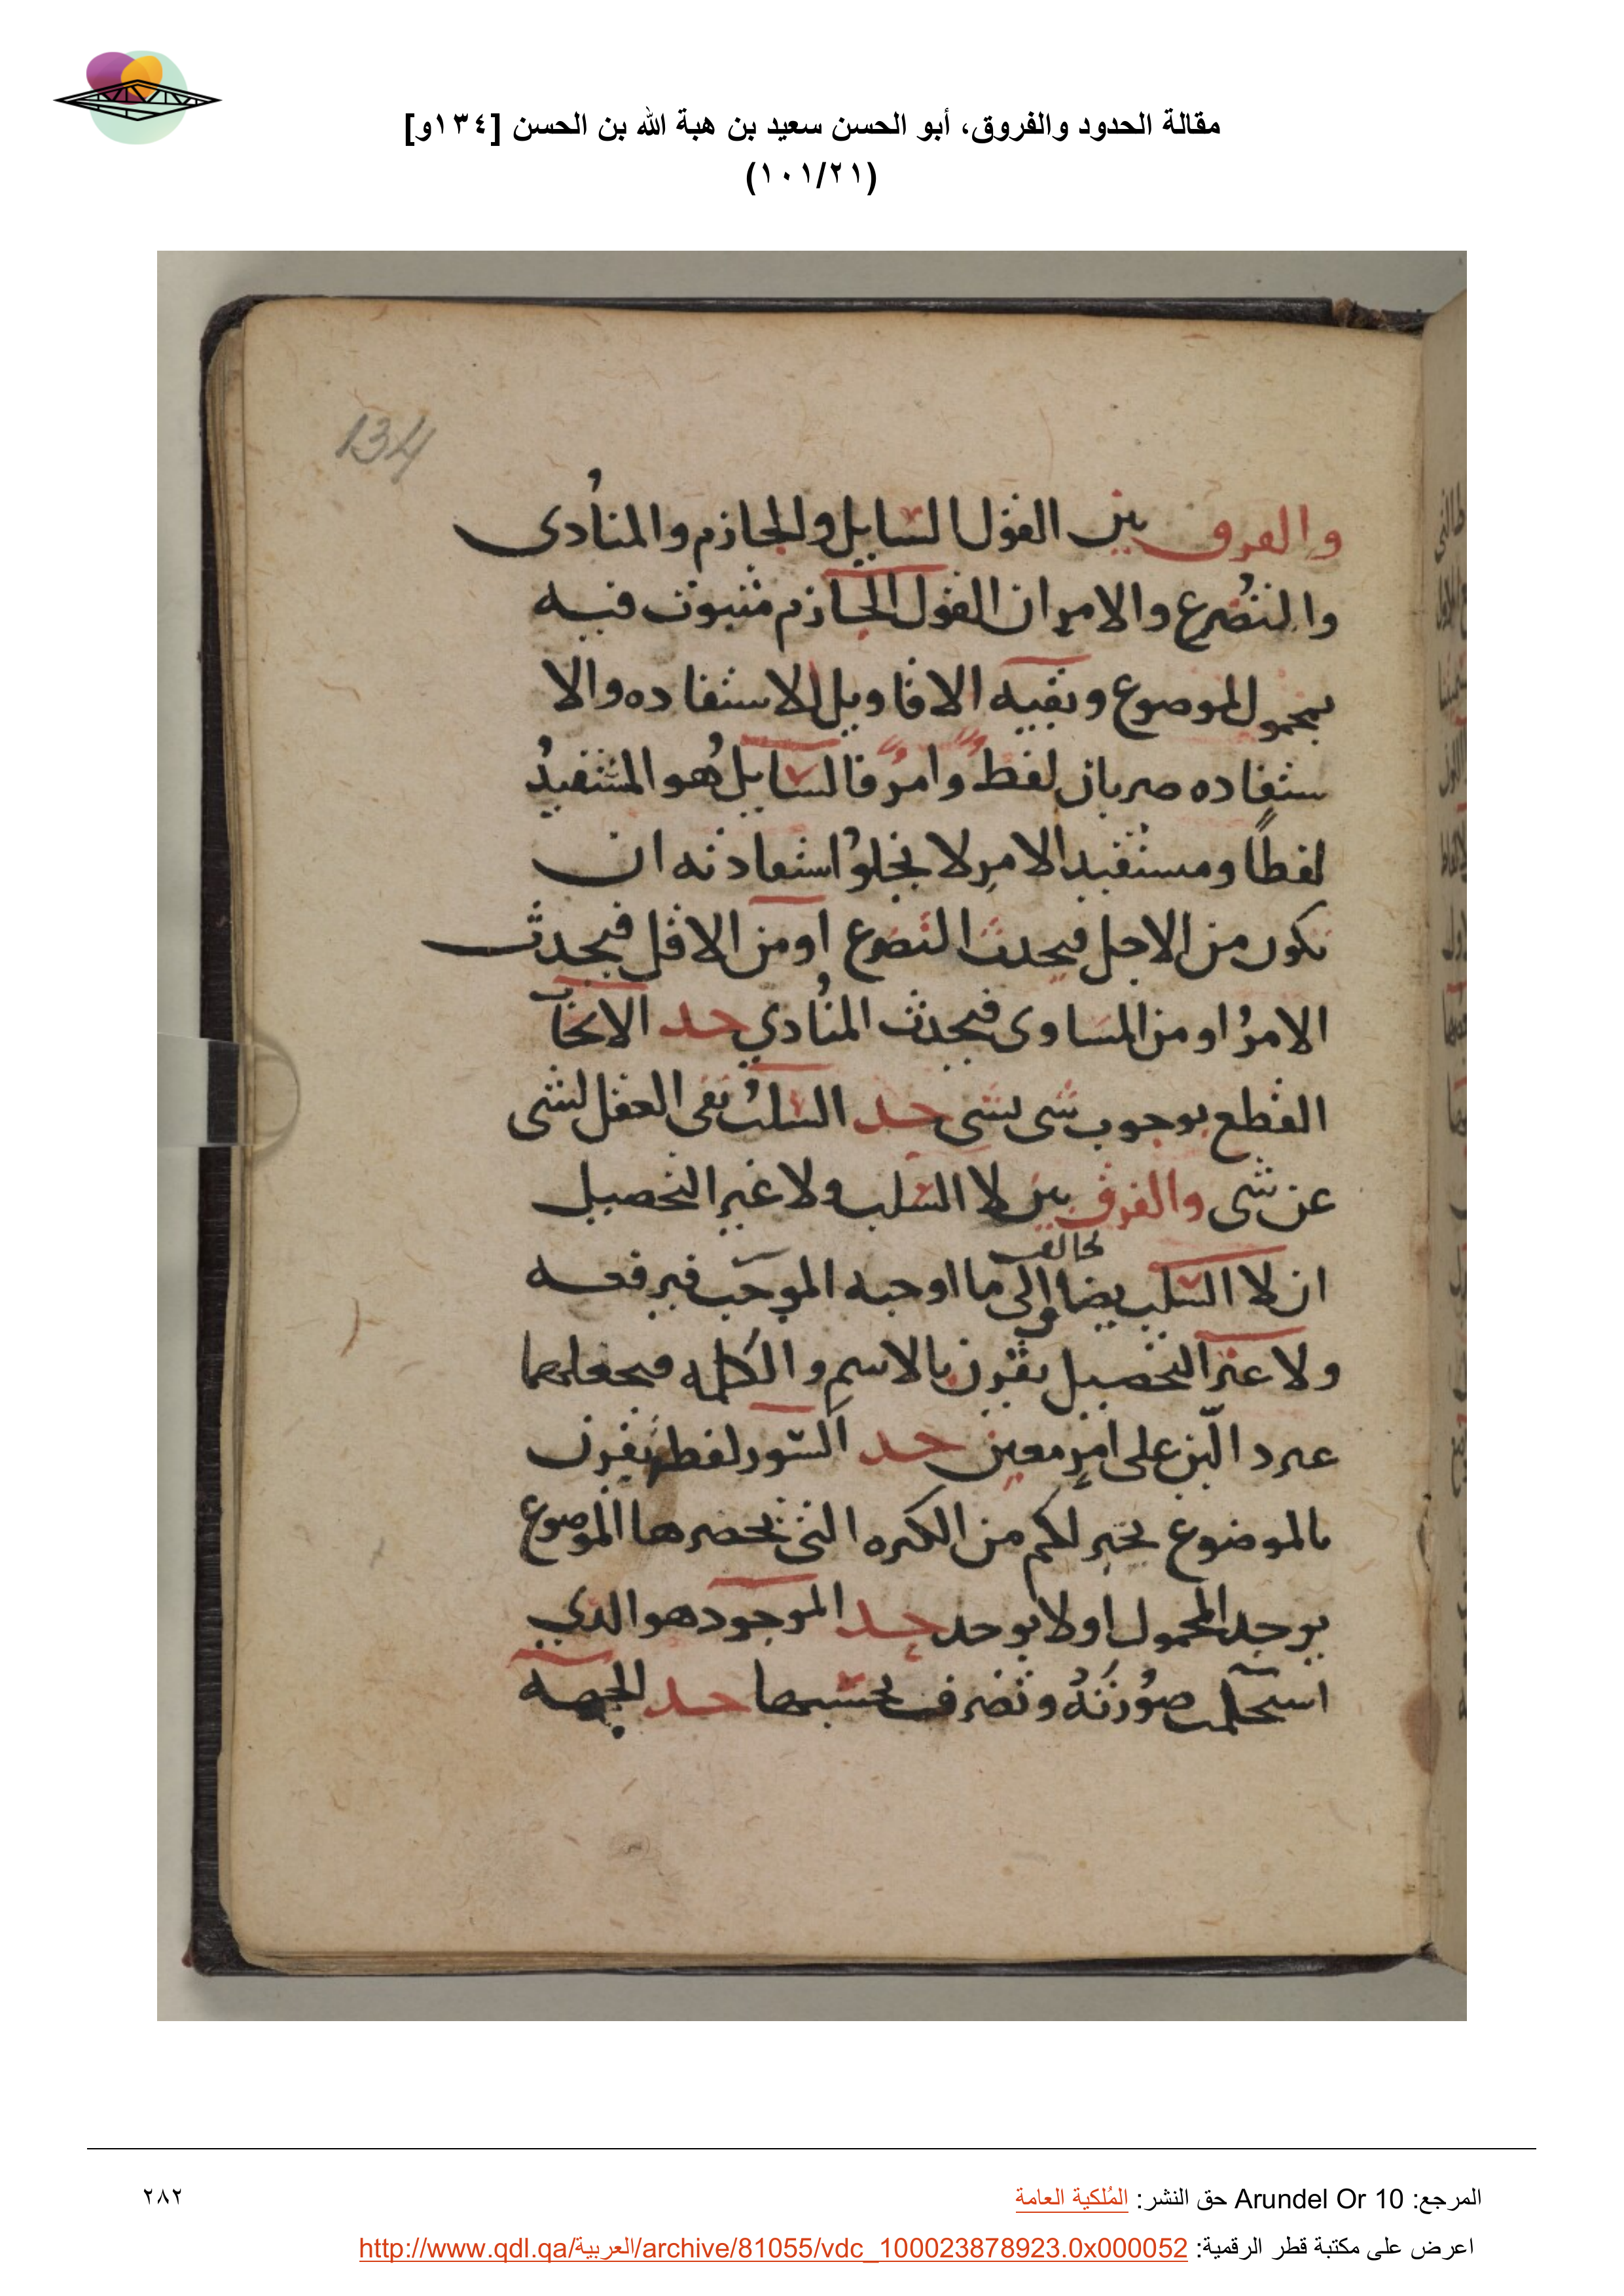 مقالة الحدود والفروق، أبو الحسن سعيد بن هبة الله بن الحسن [١٣٤و]
(١٠١/٢١)
134
والفرق بين القول السايل والجازم والمنادى
والتضرع والامر ان القول الجازم متبوت فيه
بمحمول لموضوع وبقيه الاقاويل للاستفاده والا
ستفاده ضربان لفظ وامر فالسايل هو المستفيد
لفظًا ومستفيد الامر لا يخلو استفادته ان
تكون من الاجل فيحدث التضرع او من الاقل فيحدث
الامر او من المساوى فيحدث المنادي حد الايجاب
القطع بوجوب شى لشى حد السلب نفى العقل لشى
عن شى والفرق بين لا السلب ولا غير التحصيل
يخالف
ان لا السلب يضاف الى ما اوجبه الموجب فيرفعه
ولا غير التحصيل يقترن بالاسم والكلمه فيجعلهما
على امر معين حد السور لفظ يقرن
بالموضوع يخبر لكم من الكثره التى تحصرها الموضوع
يوجد المحمول اولا يوجد حد الموجود هو الذي
صورته وتصرف بحسبها حد الجهه
المرجع: Arundel Or 10 حق النشر: المُلكية العامة
٢٨٢
اعرض على مكتبة قطر الرقمية: http://www.qdl.qa/العربية/archive/81055/vdc_100023878923.0x000052